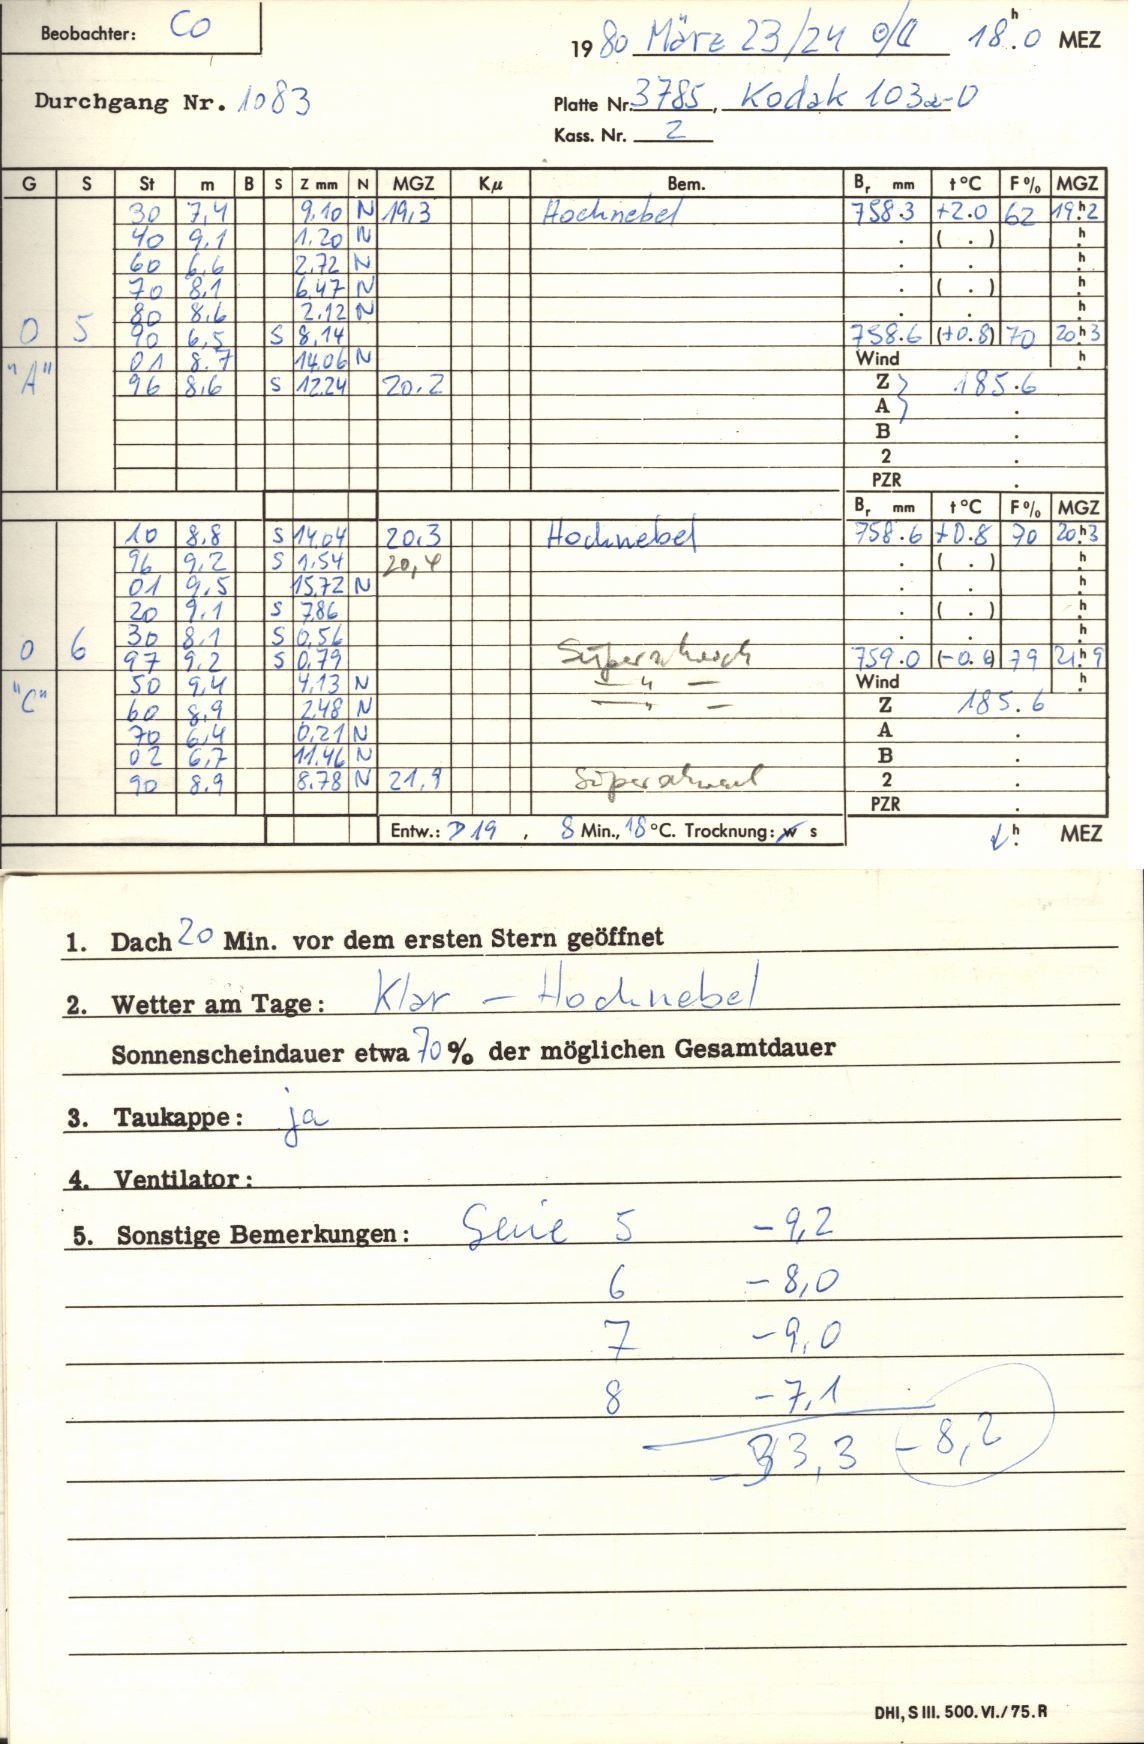 Beobachter: CO
1980 März 23/24 18h.0 MEZ
Durchgang Nr. 1083
Platte Nr. 3785, Kodak 103a-O
Kass. Nr. 2
G S St m B S Z mm N MGZ Kμ Bem. Br mm t °C F % MGZ
30 7,4 9,10 N 19,3 Hochnebel 758.3 +2.0 62 19h.2
40 9,1 1,20 N . ( . ) h.
60 6,6 2,72 N . . h.
70 8,1 6,47 N . ( . ) h.
80 8,6 2,12 N . . h.
0 5 90 6,5 S 8,14 758.6 (+0.8) 70 20h3
"A" 01 8.7 14,06 N Wind h.
96 8,6 S 12,24 20.2 Z } 185.6
A .
B .
2 .
PZR .
Br mm t °C F % MGZ
10 8,8 S 14,04 20.3 Hochnebel 758.6 +0.8 70 20h3
96 9,2 S 1,54 20,4 . ( . ) h.
01 9,5 15,72 N . . h.
20 9,1 S 7,86 . ( . ) h.
30 8,1 S 0,56 . . h.
0 6 97 9,2 S 0,79 759.0 79 21h9
"C" 50 9,4 4,13 N — " — Wind h.
60 8,9 2,48 N — " — Z 185.6
70 6,4 0,21 N A .
02 6,7 11,46 N B .
90 8,9 8,78 N 21,9 2 .
PZR .
Entw.: D 19 , 8 Min., 18 °C. Trocknung: w s h. MEZ
1. Dach 20 Min. vor dem ersten Stern geöffnet
2. Wetter am Tage: Klar – Hochnebel
Sonnenscheindauer etwa 70 % der möglichen Gesamtdauer
3. Taukappe: ja
4. Ventilator:
5. Sonstige Bemerkungen: Serie 5 -9,2
6 -8,0
7 -9,0
8 -7,1
-33,3 -8,2
DHI, S III. 500. VI./75. R